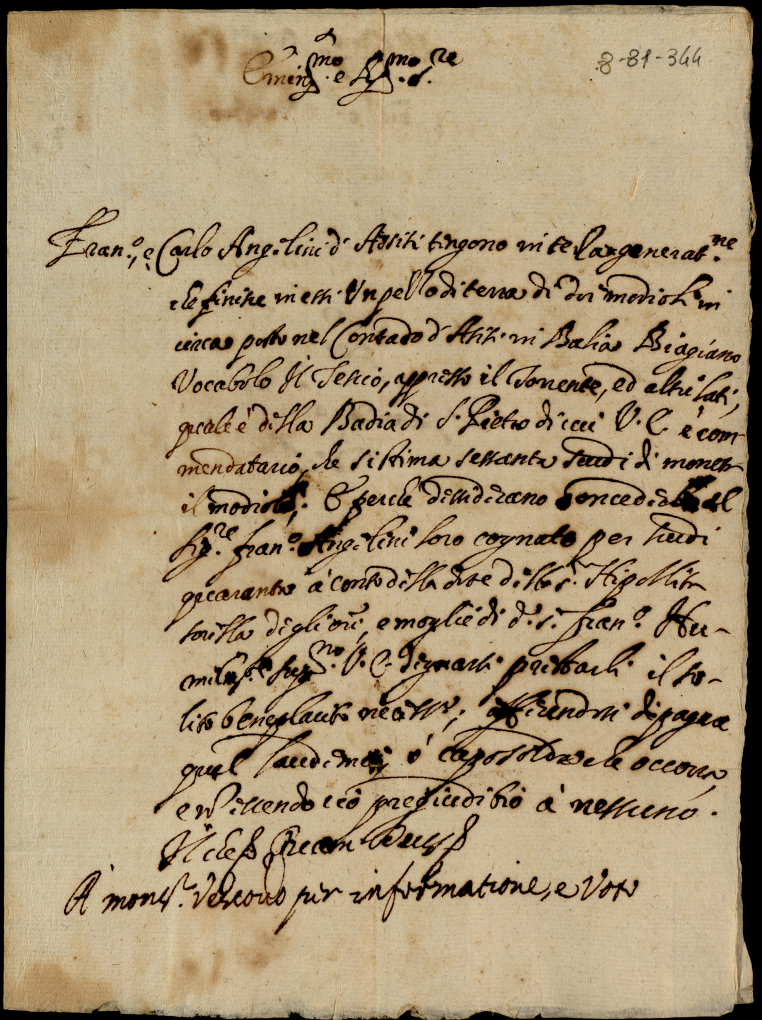 8-81-344
Emin.mo e R.mo S.re
Fran.o, e Carlo Angelini d'Assisi tengono in terza generat.ne
da finire in essi Un pezzo di terra di doi modioli in
circa posto nel Contado d'Assisi in Balia Biagiano
Vocabolo Il Tescio, appresso il Torrente, ed altri lati,
quale è della Badia di S. Pietro di cui V. E. è com
mendatario, che si stima sessanta scudi di moneta
il modiolo; E perche desiderano concederla al
Sig.re Fran.o Angelini loro cognato per scudi
quaranta à conto della dote della S.ra Hipolita
sorella degl'ori, e moglie di d.o S. Fran.o Hu-
milm.te supp.no V. E. degnarsi prestarli il so-
lito beneplacito necess.o; offerendosi di pagare
quel laudemio ò caposoldo che occorre
e n' essendo ciò pregiuditio à nessuno.
Il che
A Mons.r Vescovo per informatione, e Voto